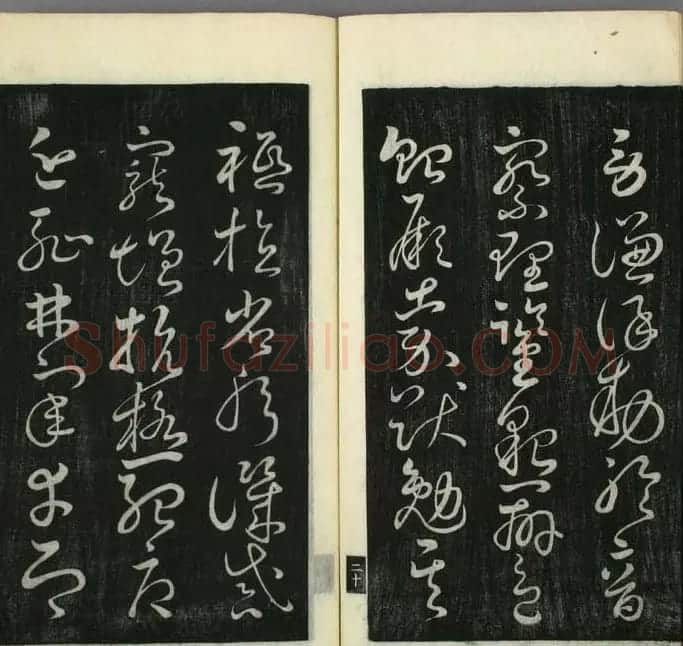 勞謙謹勅聆音
察理鑒貌辨色
貽厥嘉猷勉其
祗植省躬譏誡
寵增抗極殆辱
近恥林皋幸即
二十
Shufaziliao.COM